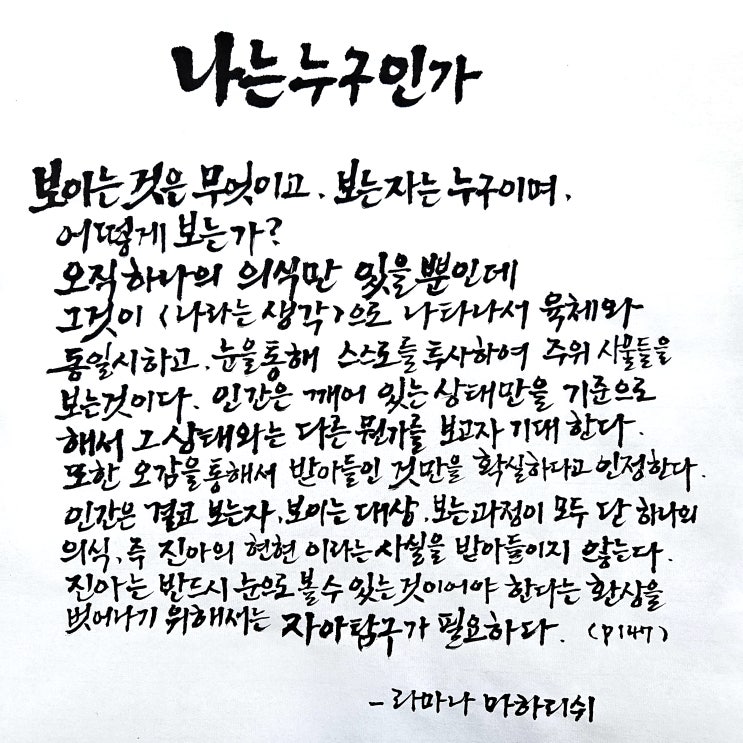 나는누구인가
보이는 것은 무엇이고, 보는자는 누구이며,
어떻게 보는가?
오직 하나의 의식만 있을 뿐인데
그것이 <나라는 생각>으로 나타나서 육체와
동일시하고, 눈을통해 스스로를 투사하여 주위 사물들을
보는것이다. 인간은 깨어 있는 상태만을 기준으로
해서 그 상태와는 다른 뭔가를 보고자 기대 한다.
또한 오감을 통해서 받아들인 것만을 확실하다고 인정한다.
인간은 결코 보는자, 보이는 대상, 보는과정이 모두 단 하나의
의식, 즉 진아의 현현 이라는 사실을 받아들이지 않는다.
진아는 반드시 눈으로 볼 수 있는 것이어야 한다는 환상을
벗어나기 위해서는 자아탐구가 필요하다. (P147)
- 라마나 마하리쉬